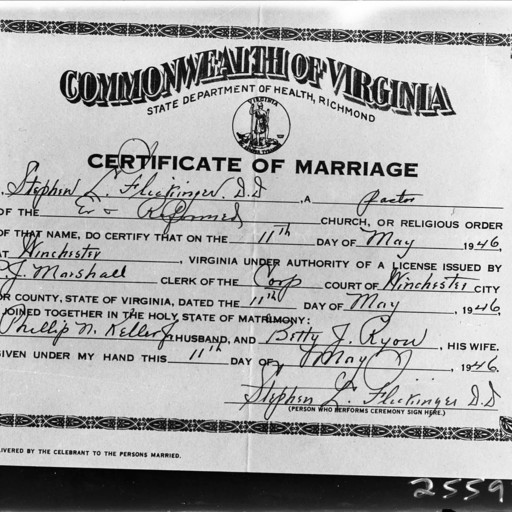 COMMONWEALTH OF VIRGINIA
STATE DEPARTMENT OF HEALTH, RICHMOND
VIRGINIA
CERTIFICATE OF MARRIAGE
Stephen L. Flickinger, D.D , A pastor
OF THE Ev & Reformed CHURCH, OR RELIGIOUS ORDER
OF THAT NAME, DO CERTIFY THAT ON THE 11th DAY OF May 1946,
AT Winchester , VIRGINIA UNDER AUTHORITY OF A LICENSE ISSUED BY
J. Marshall CLERK OF THE Corp COURT OF Winchester CITY
OR COUNTY, STATE OF VIRGINIA, DATED THE 11th DAY OF May , 1946,
JOINED TOGETHER IN THE HOLY STATE OF MATRIMONY:
Phillip N. Keller Jr HUSBAND, AND Betty J. Ryon , HIS WIFE.
GIVEN UNDER MY HAND THIS 11th DAY OF May , 1946.
Stephen L. Flickinger D.D
(PERSON WHO PERFORMS CEREMONY SIGN HERE.)
IVERED BY THE CELEBRANT TO THE PERSONS MARRIED.
2559